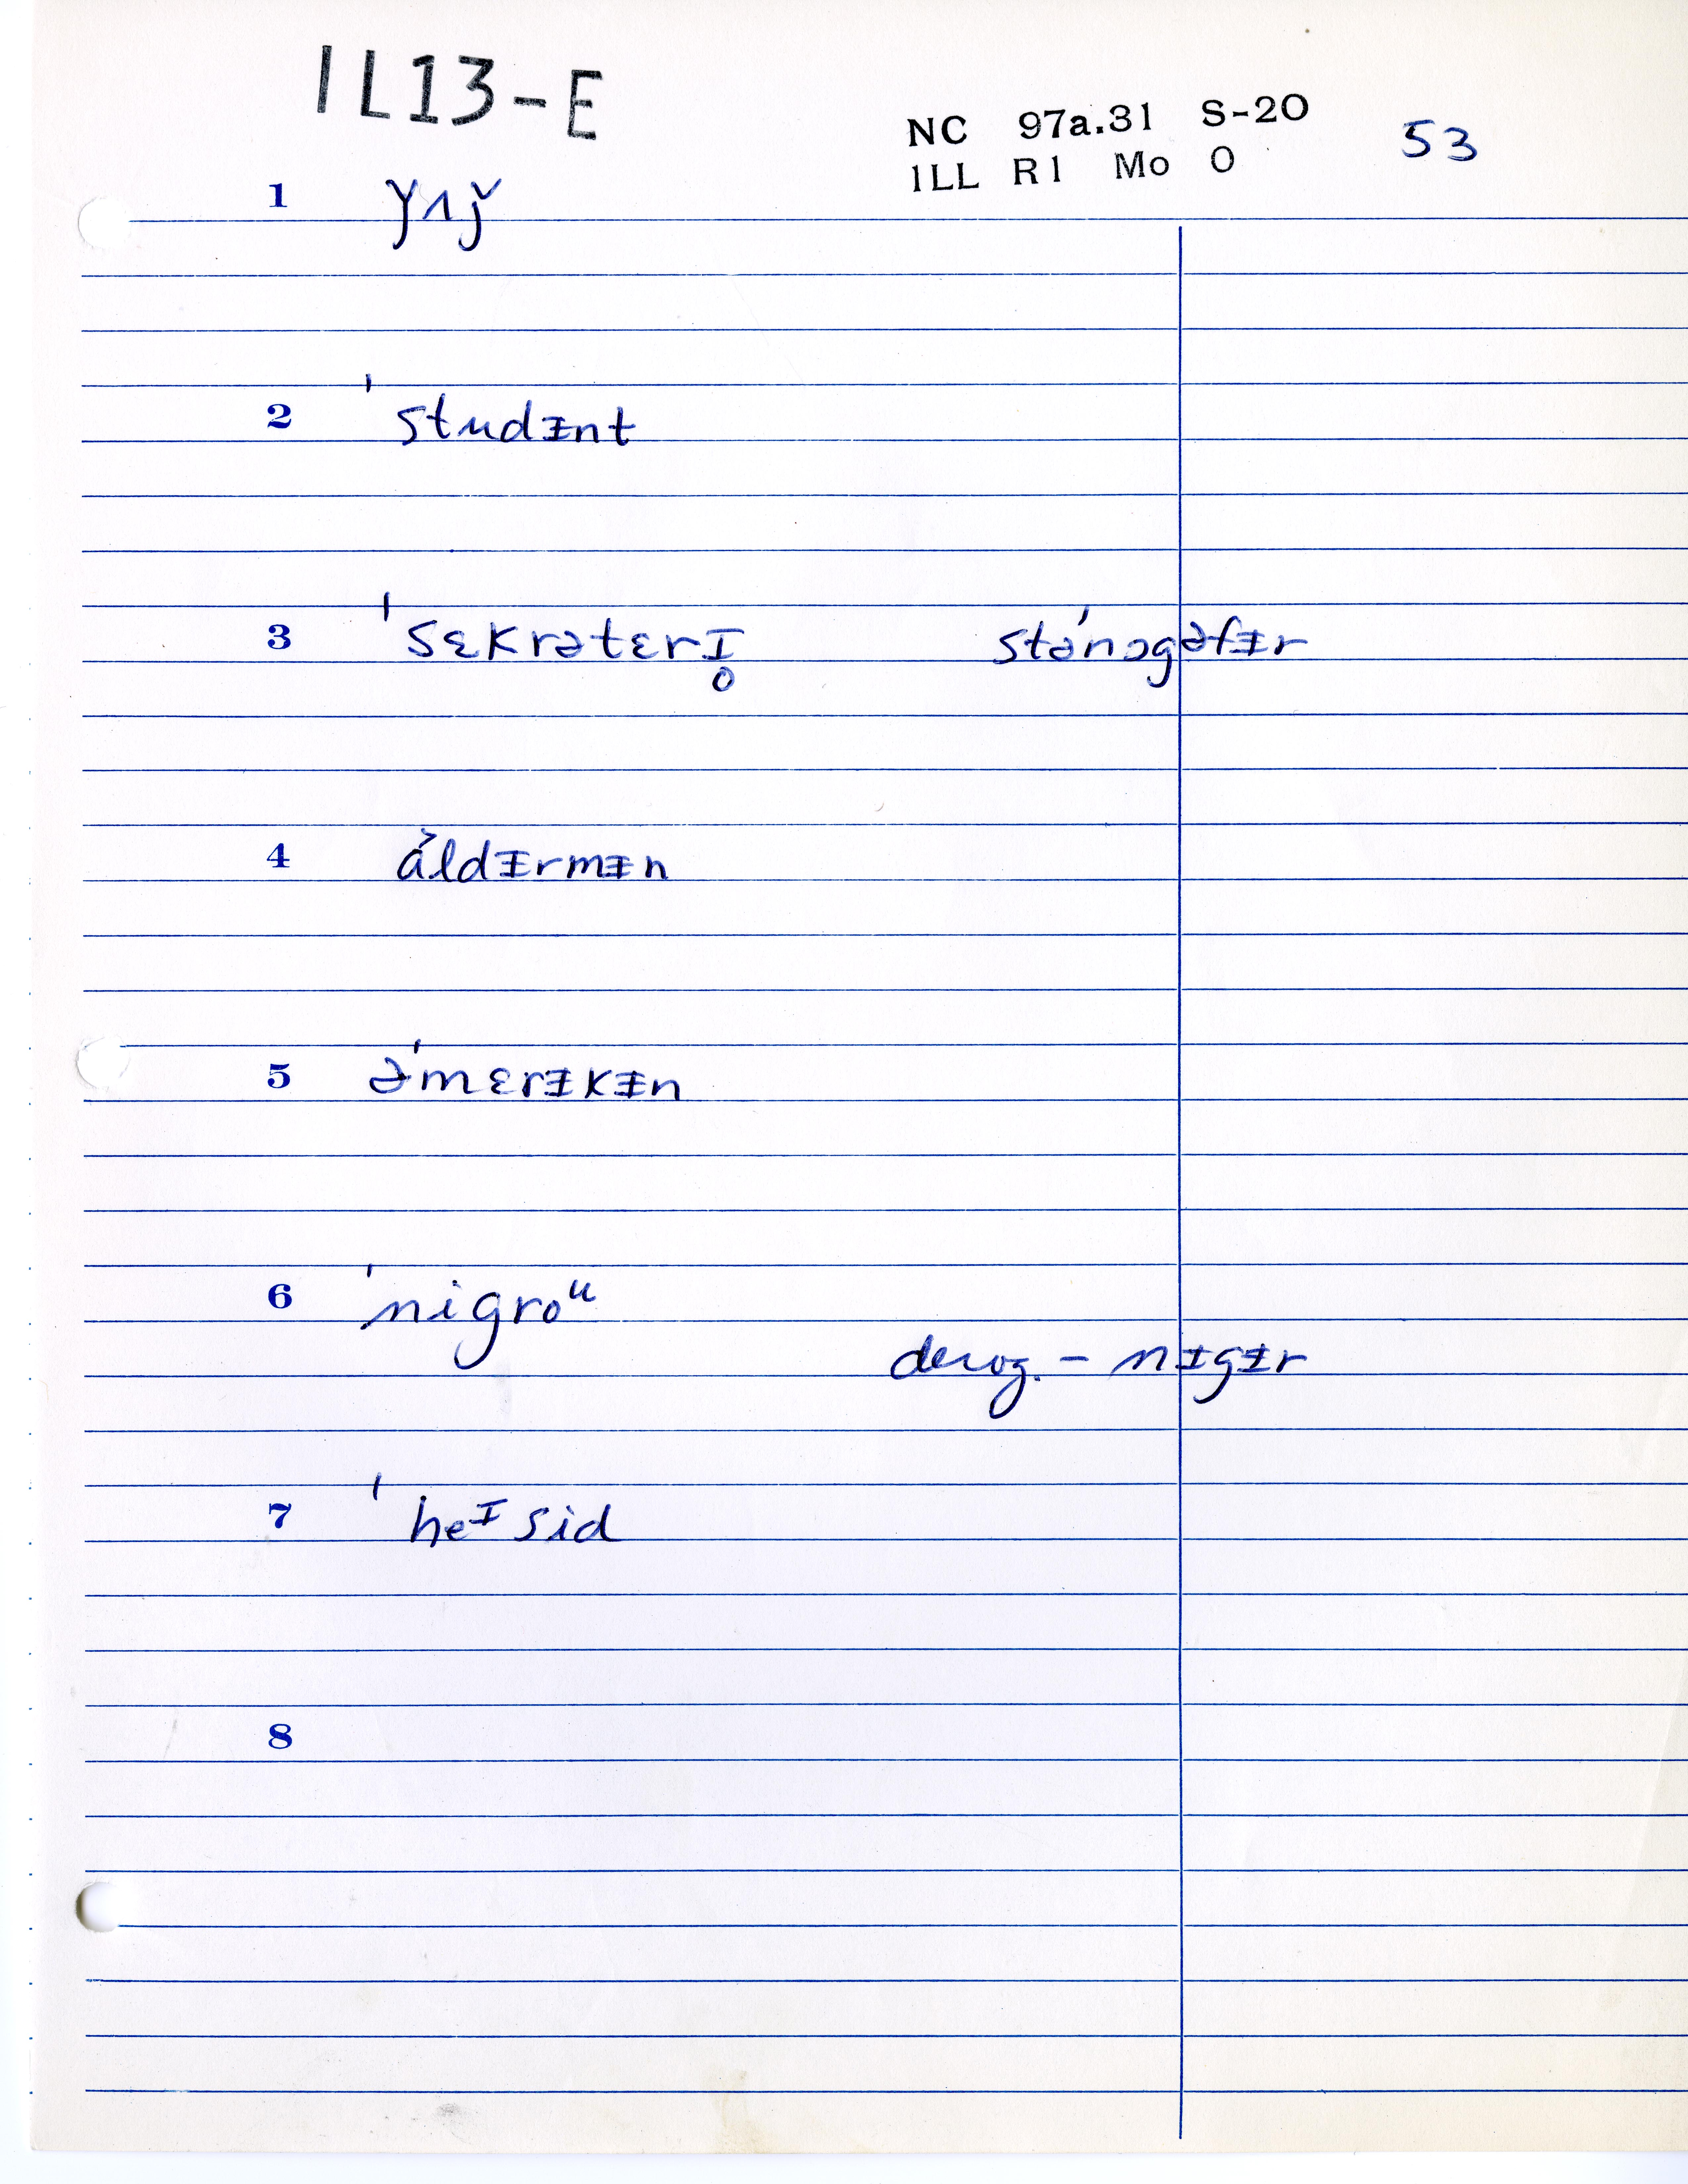 IL13-E
NC 97a.31 S-20 53
ILL R1 Mo O
1 ǰʌǰ
2 ˈstudᵻnt
3 ˈsɛkrətɛrɪ̥ stəˈnɔgəfᵻr
4 ɑ́ldᵻrmᵻn
5 əˈmɛrᵻkᵻn
6 ˈnigroᵘ
derog. – nᵻgᵻr
7 ˈheᶦsid
8